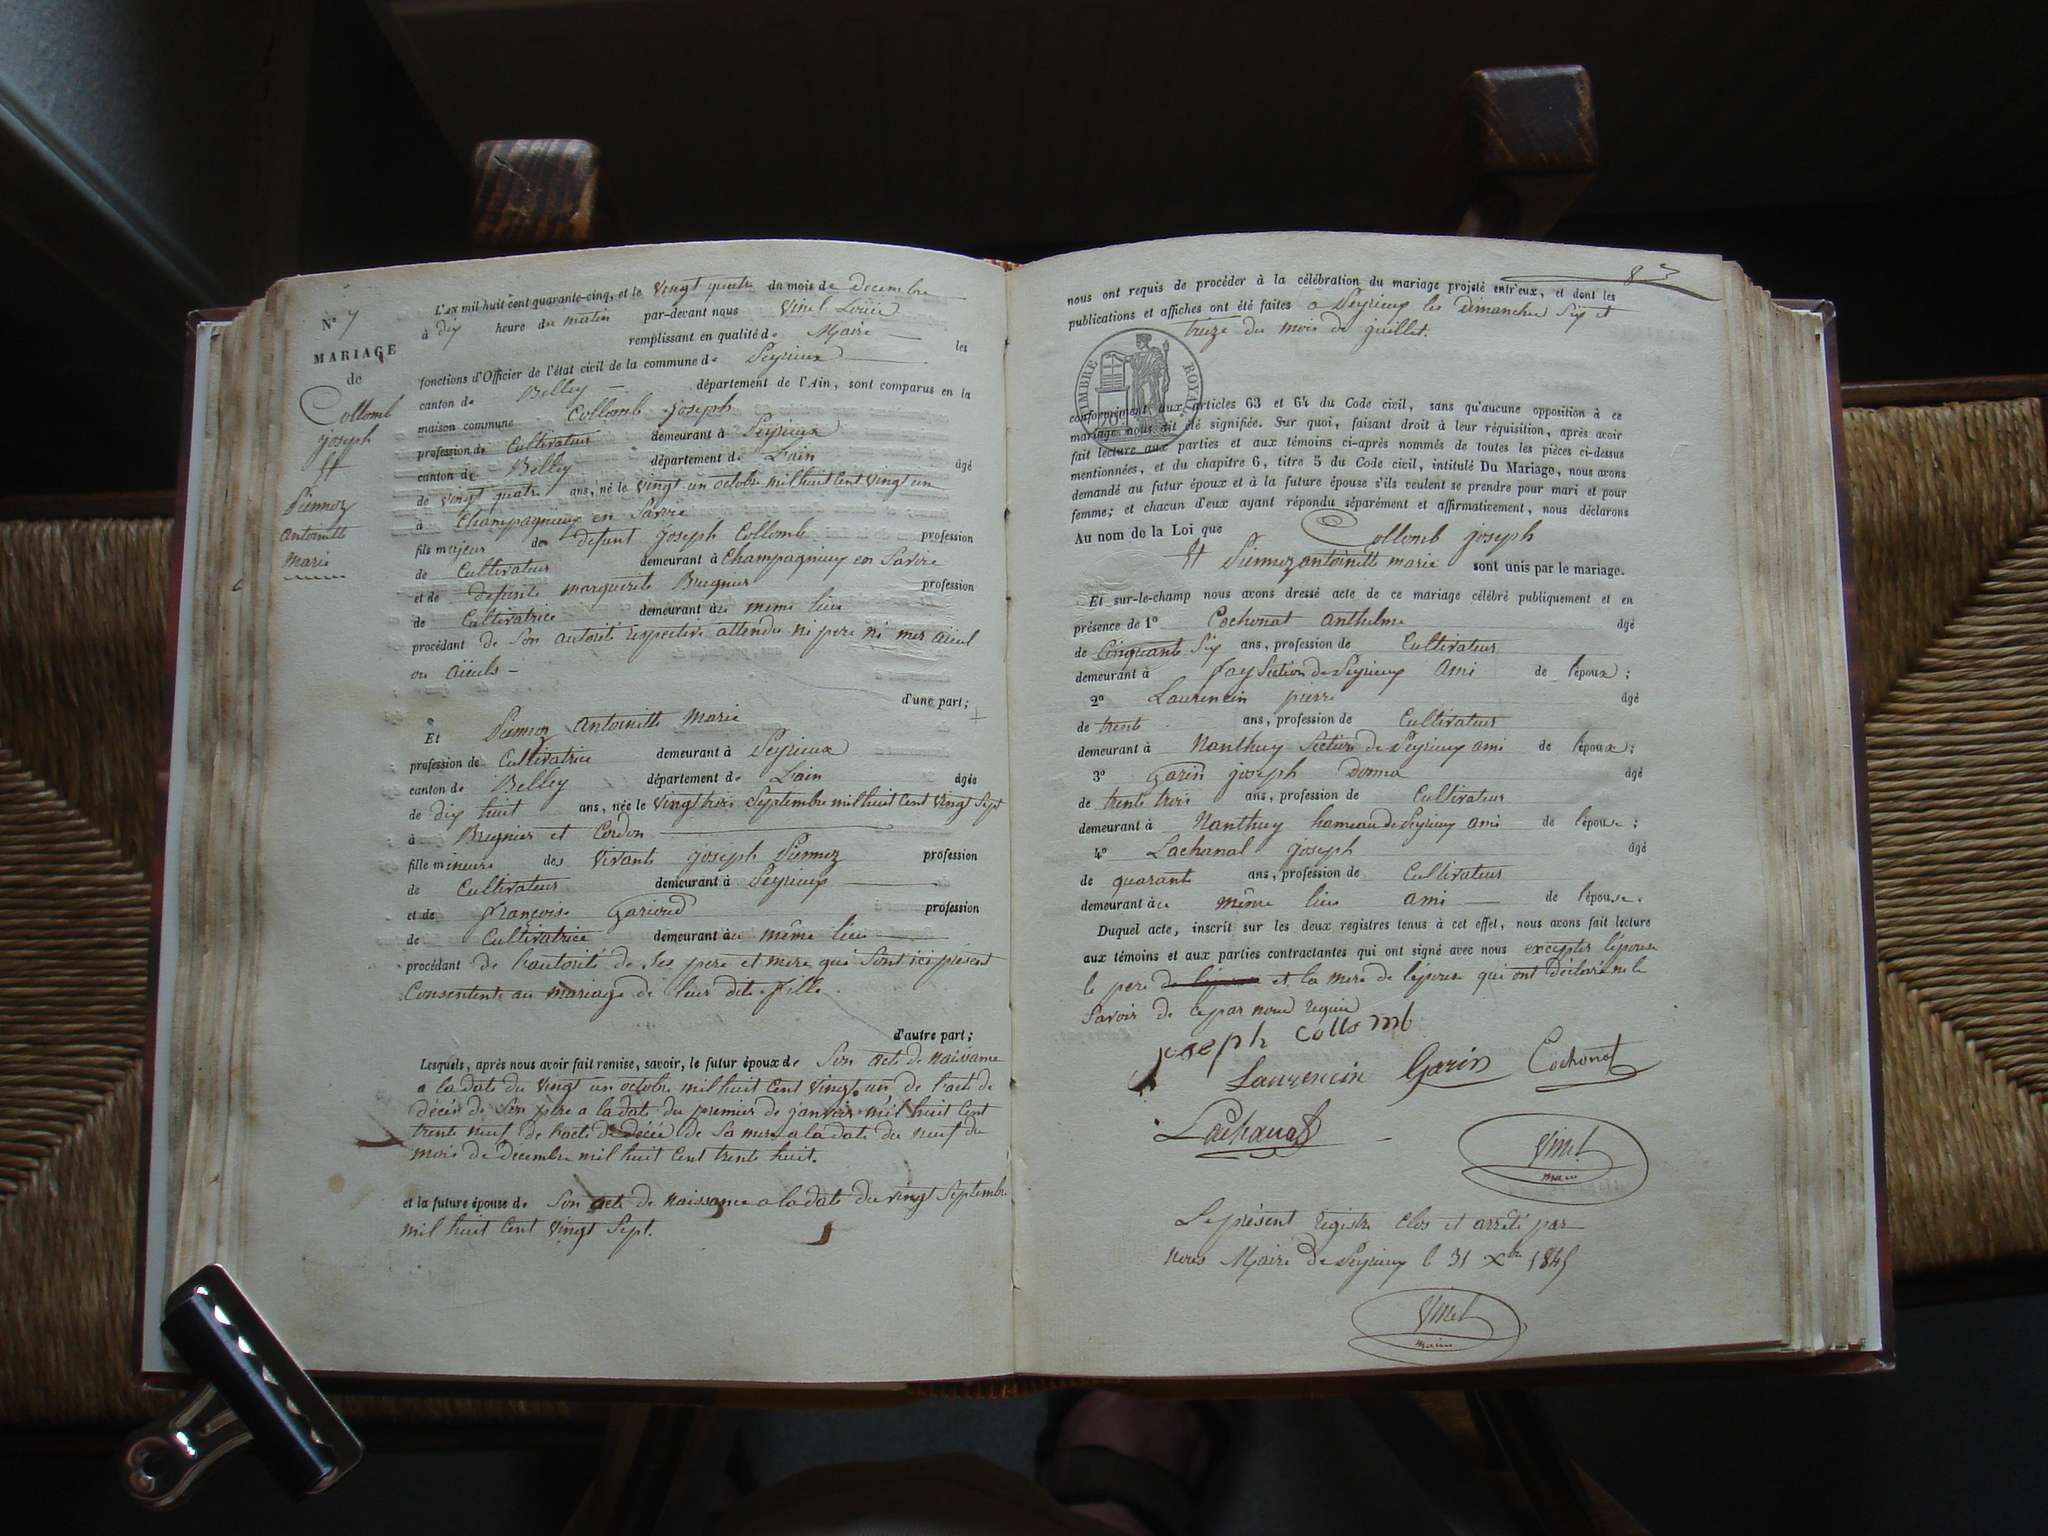 N° 7
MARIAGE
de
Collomb
joseph
et
Piennoz
antoinette
marie
L'an mil huit cent quarante-cinq, et le vingt quatre du mois de decembre
à dix heure du matin par-devant nous Vinet Louis
remplissant en qualité de Maire les
fonctions d'Officier de l'état civil de la commune de Peyrieux
canton de Belley département de l'Ain, sont comparus en la
maison commune Collomb joseph
profession de Cultivateur demeurant à Peyrieux
canton de Belley département de L'ain âgé
de vingt quatre ans, né le vingt un octobre mil huit cent vingt un
à Champagnieux en Savoie
fils majeur de defunt joseph Collomb profession
de Cultivateur demeurant à Champagnieux en Savoie
et de defunte marguerite profession
de Cultivatrice demeurant au meme lieu
procédant de son autorité respective attendu ni pere ni mere aïeul
ou aïeuls
d'une part;
Et Piennoz antoinette marie
profession de Cultivatrice demeurant à Peyrieux
canton de Belley département de L'ain âgée
de dix huit ans, née le vingt trois septembre mil huit cent vingt sept
à Bregnier et Cordon
fille mineure des vivants joseph Piennoz profession
de Cultivateur demeurant à Peyrieux
et de françoise Garioud profession
de Cultivatrice demeurant au même lieu
procédant de l'autorité de ses pere et mere qui sont ici présent
Consentent au mariage de leur dite fille.
d'autre part;
Lesquels, après nous avoir fait remise, savoir, le futur époux de Son acte de naissance
a la date du vingt un octobre mil huit cent vingt un de l'acte de
décés de son père a la date du premier de janvier mil huit cent
trente neuf de l'acte de décés de sa mere a la date du neuf du
mois de decembre mil huit cent trente huit.
et la future épouse de Son acte de naissance a la date du vingt septembre
mil huit cent vingt sept.
8
nous ont requis de procéder à la célébration du mariage projeté entr'eux, et dont les
publications et affiches ont été faites a Peyrieux les dimanches six et
treize du mois de juillet.
TIMBRE ROYAL
conformément aux articles 63 et 64 du Code civil, sans qu'aucune opposition à ce
mariage nous ait été signifiée. Sur quoi, faisant droit à leur réquisition, après avoir
fait lecture aux parties et aux témoins ci-après nommés de toutes les pièces ci-dessus
mentionnées, et du chapitre 6, titre 5 du Code civil, intitulé Du Mariage, nous avons
demandé au futur époux et à la future épouse s'ils veulent se prendre pour mari et pour
femme; et chacun d'eux ayant répondu séparément et affirmativement, nous déclarons
Au nom de la Loi que Collomb joseph
et Piennoz antoinette marie sont unis par le mariage.
Et sur-le-champ nous avons dressé acte de ce mariage célébré publiquement et en
présence de 1° Cochonat anthelme âgé
de Cinquante Six ans, profession de Cultivateur
demeurant à fay Section de Peyrieux ami de l'époux;
2° Laurencin pierre âgé
de trente ans, profession de Cultivateur
demeurant à Nanthuy Section de Peyrieux ami de l'époux;
3° Garin joseph Donna âgé
de trente trois ans, profession de Cultivateur
demeurant à Nanthuy hameau de Peyrieux ami de l'épouse;
4° Lachanal joseph âgé
de quarante ans, profession de Cultivateur
demeurant au même lieu ami de l'épouse.
Duquel acte, inscrit sur les deux registres tenus à cet effet, nous avons fait lecture
aux témoins et aux parties contractantes qui ont signé avec nous excepter l'épouse
le pere et la mere de l'epouse qui ont déclaré ne le
savoir de ce par nous requis
joseph collomb
Laurencin Garin Cochonat
Lachanal
Vinet
maire
Le présent registre clos et arrêté par
nous Maire de Peyrieux le 31 Xbre 1845
Vinet
maire